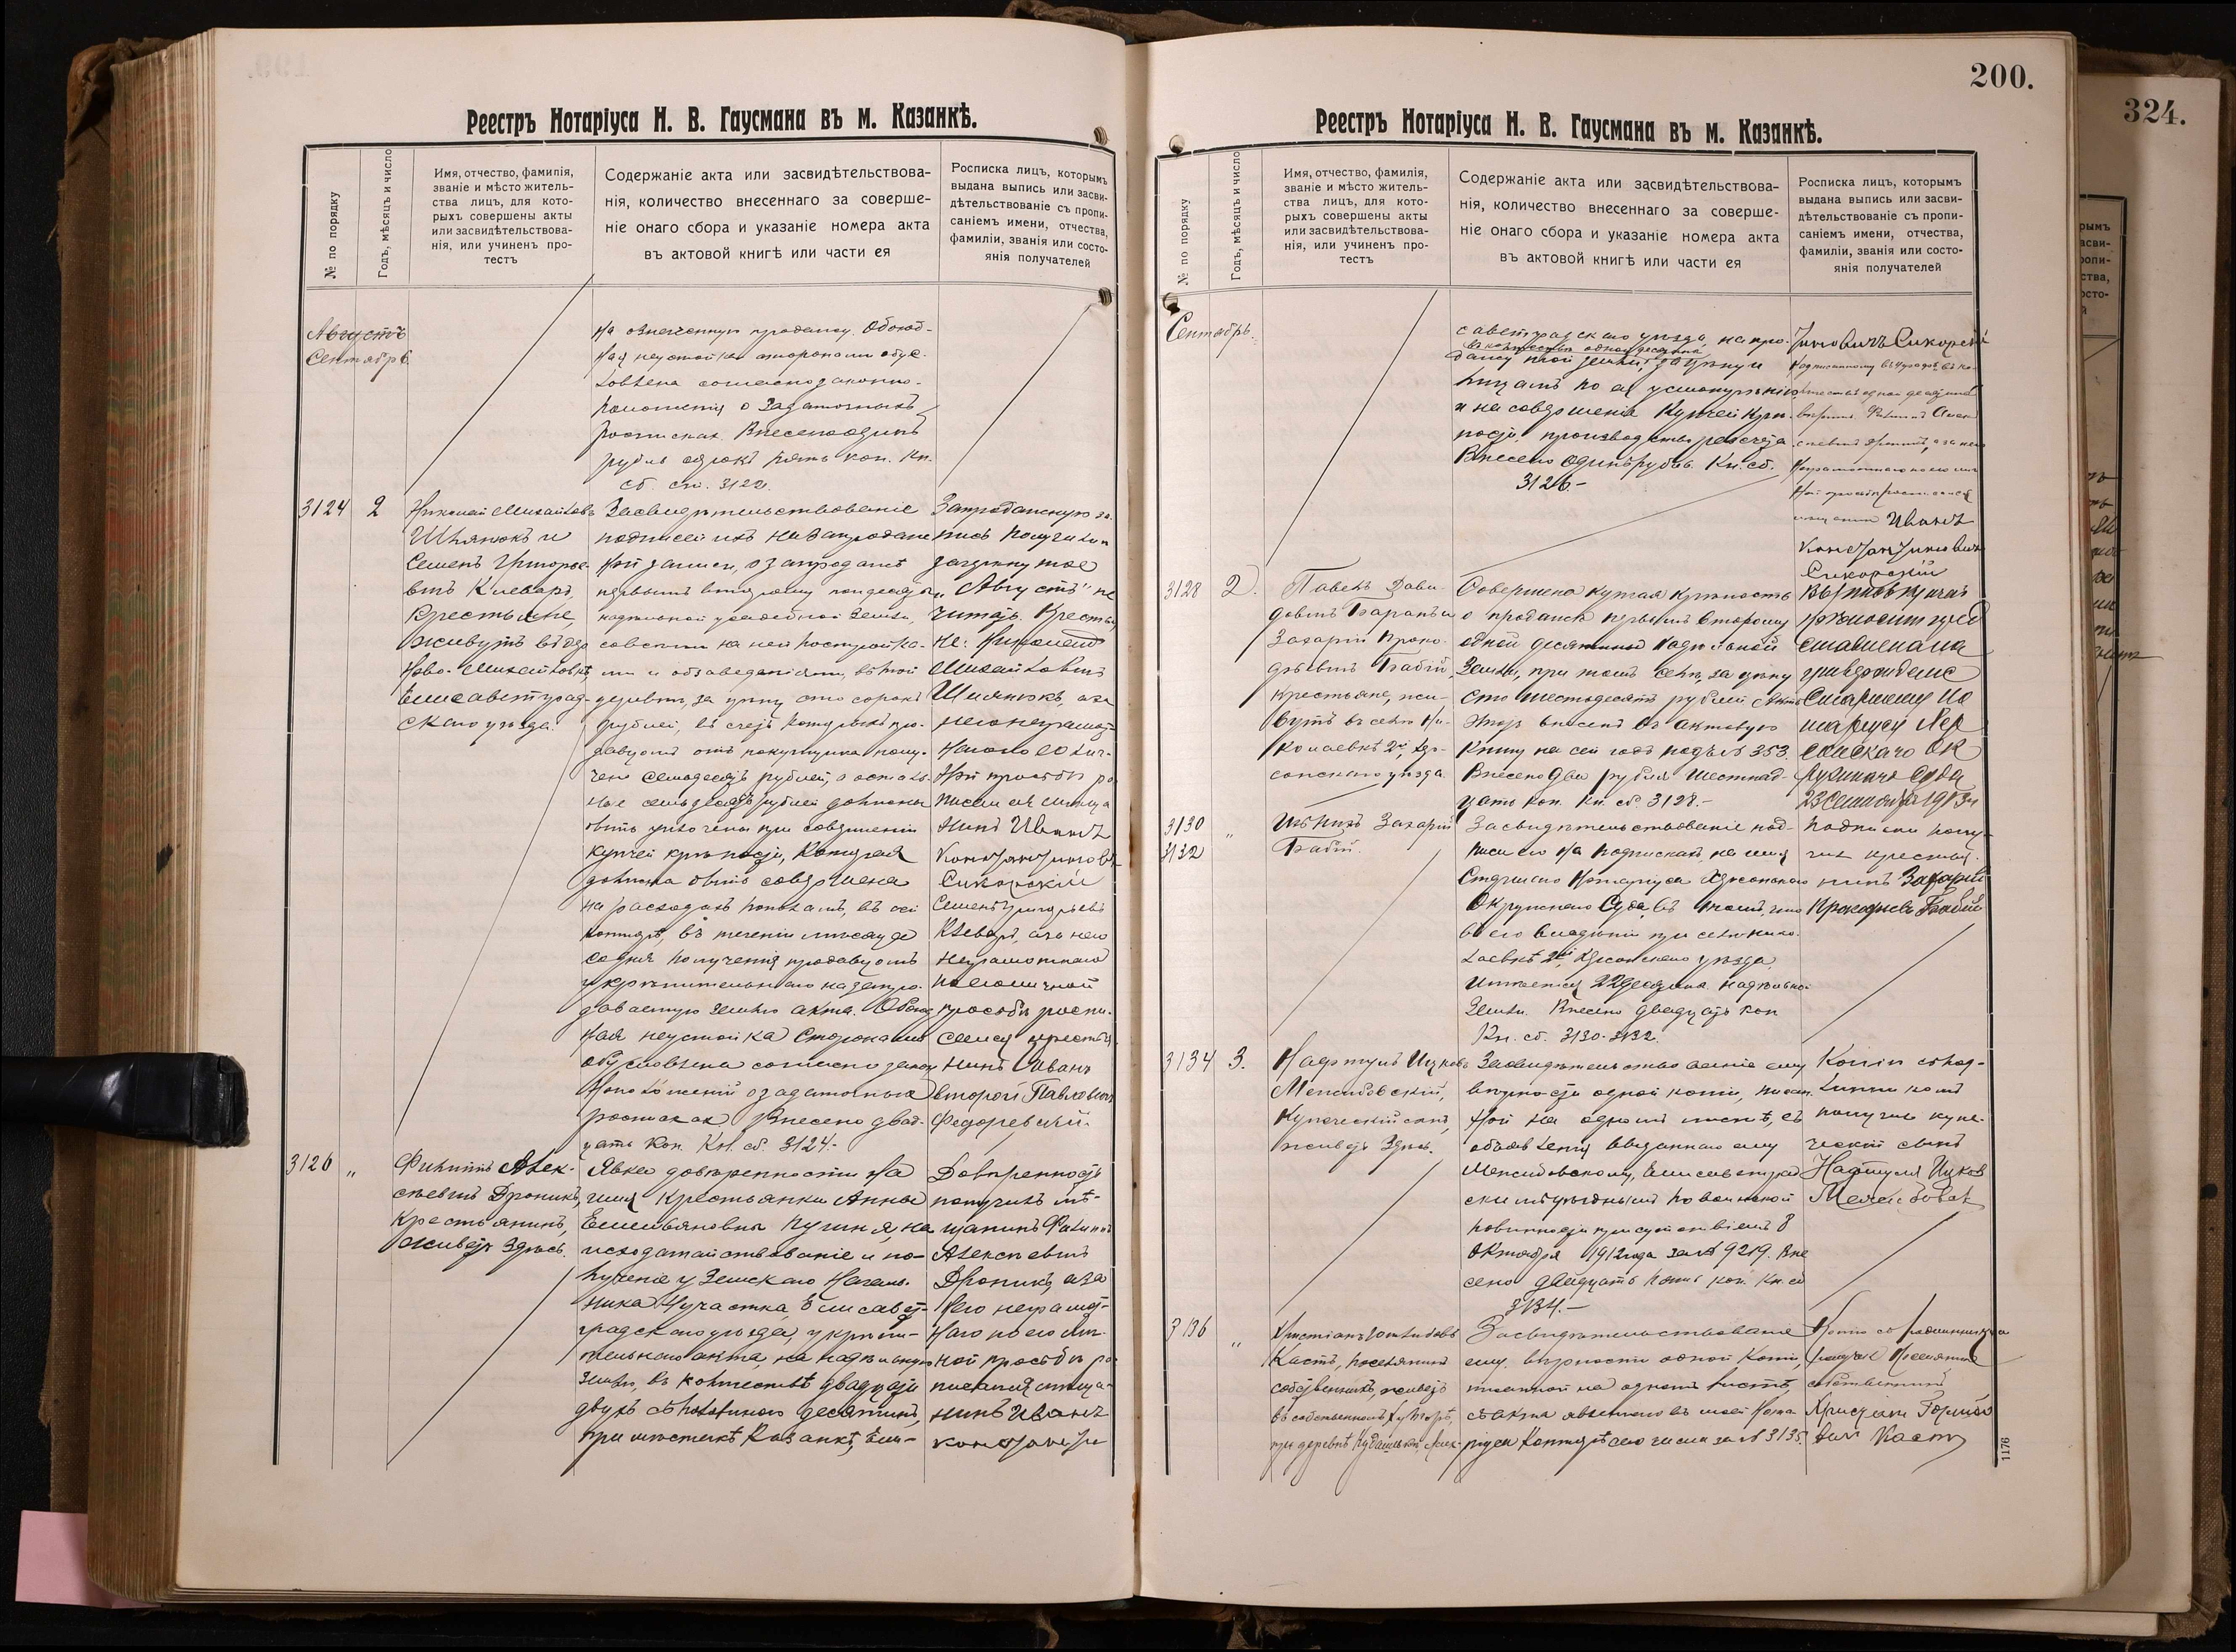 Реестръ Нотаріуса Н. В. Гаусмана въ м. Казанкѣ.
№ по порядку
Годъ, мѣсяцъ и число
Имя, отчество, фамилія,
званіе и мѣсто житель-
ства лицъ, для кото-
рыхъ совершены акты
или засвидѣтельствова-
нія, или учиненъ про-
тестъ
Содержаніе акта или засвидѣтельствова-
нія, количество внесеннаго за соверше-
ніе онаго сбора и указаніе номера акта
въ актовой книгѣ или части ея
Росписка лицъ, которымъ
выдана выпись или засви-
дѣтельствованіе съ пропи-
саніемъ имени, отчества,
фамиліи, званія или состо-
янія получателей
Августъ
Сентябрь.
на означенную продажу. Обоюд-
ная неустойка сторонами обус-
ловлена согласно законо-
положенія о задаточныхъ
роспискахъ. Внесено одинъ
рубль сорокъ пять коп. Кн.
сб. ст. 3122.
3124
2
Николай Михайловъ
и
Семенъ Григорье-
вичъ Клеваръ,
Крестьяне,
живутъ въ дер.
Ново-Михайловкѣ,
Елисаветград-
скаго уѣзда.
Засвидѣтельствованіе
подписей ихъ на запродаж-
ной записи, о запродажѣ
первымъ второму
надѣльной усадебной земли,
со всѣми на ней постройка-
ми и обзаведеніями, въ той
деревнѣ, за цѣну сто сорокъ
рублей, въ счетъ которыхъ про-
давцомъ отъ покупщика полу-
чено семьдесятъ рублей, а осталь-
ные семьдесятъ рублей должны
быть уплочены при совершеніи
купчей крѣпости, которая
должна быть совершена
на расходахъ пополамъ, въ сей
конторѣ, въ теченіи мѣсяца
со дня полученія продавцомъ
укрѣпительнаго на запро-
даваемую землю акта. Обоюд-
ная неустойка сторонами
обусловлена согласно закон
положеній о задаточныхъ
роспискахъ. Внесено двад-
цать коп. Кн. сб. 3124.-
Запродажную за-
пись получили
зачеркнутое
„Августъ" не
читать. Крестья
не: Николай
Михайловичъ
а за
него неграмот-
наго по его лич-
ной просьбѣ ро
писался мѣща
нинъ Иванъ
Константиновъ
Сикорскій
Семенъ Григорьевъ
Клеваръ, а за него
неграмотнаго
по его личной
просьбѣ роспи-
сался крестья
нинъ Иванъ
второй Павловичъ
3126
„
Филиппъ Алек-
сѣевичъ Дроникъ,
крестьянинъ,
живетъ здѣсь.
Явка довѣренности на
имя крестьянки Анны
Емельяновны на
исходатайствованіе и по-
лученіе у Земскаго Началь-
ника 4 участка, Елисавет-
градскаго уѣзда, укрѣпи-
тельнаго акта, на надѣльную
землю, въ количествѣ двадцати
двухъ съ половиною десятинъ,
при мѣстечкѣ Казанкѣ, Ели-
Довѣренность
получилъ мѣ-
щанинъ Филиппъ
Алексѣевичъ
Дроникъ, а за
него неграмот-
наго по его лич-
ной просьбѣ ро
писался мѣща-
нинъ Иванъ
Константи
200.
Реестръ Нотаріуса Н. В. Гаусмана въ м. Казанкѣ.
№ по порядку
Годъ, мѣсяцъ и число
Имя, отчество, фамилія,
званіе и мѣсто житель-
ства лицъ, для кото-
рыхъ совершены акты
или засвидѣтельствова-
нія, или учиненъ про-
тестъ
Содержаніе акта или засвидѣтельствова-
нія, количество внесеннаго за соверше-
ніе онаго сбора и указаніе номера акта
въ актовой книгѣ или части ея
Росписка лицъ, которымъ
выдана выпись или засви-
дѣтельствованіе съ пропи-
саніемъ имени, отчества,
фамиліи, званія или состо-
янія получателей
Сентябрь.
саветградскаго уѣзда, на про-
въ количествѣ одной десятины
дажу той земли, за цѣну и
лицамъ по ея усмотрѣнію
и на совершеніе купчей крѣ-
пости, производство разсчета.
Внесено одинъ рубль. Кн. сб.
3126.-
тиновичъ Сикорскій
Иванъ
Константиновичъ
Сикорскій
3128
2.
Павелъ Дави-
довичъ Баранъ и
Захарій Проко-
фьевичъ Бабій,
крестьяне, жи-
вутъ въ селѣ Ни-
колаевкѣ 2й, Хер-
сонскаго уѣзда.
Совершена купчая крѣпость
о продажѣ первымъ второму
одной десятины надѣльной
земли, при томъ селѣ, за цѣну
сто шестьдесятъ рублей. Актъ
этотъ внесенъ въ актовую
книгу на сей годъ подъ № 353.
Внесено два рубля шестнад-
цать коп. Кн. сб. 3128.-
Выпись
пред
ставлена на
утвержденіе
Старшему Но
таріусу Хер
сонскаго Ок
ружнаго Суда
23 Сентября 1913 г
3130
3132
„
Захарій
Бабій.
Засвидѣтельствованіе под-
писи его на подпискахъ, на имя
Старшаго Нотаріуса Херсонскаго
Окружнаго Суда, въ томъ, что
въ его владѣніи при селѣ Нико-
лаевкѣ 2й, Херсонскаго уѣзда,
имѣется 22 десятина надѣльной
земли. Внесено двадцать коп
Кн. сб. 3130-3132.
Подписки полу-
чилъ крестья-
нинъ Захарій
Прокофьевъ Бабій
3134
3.
Нафтулъ Ицковъ
купеческій сынъ,
живетъ здѣсь.
Засвидѣтельствованіе ему
вѣрности одной копіи, писан-
ной на одномъ листѣ, съ
объявленія выданнаго ему
Елисаветград
скимъ уѣзднымъ по воинской
повинности присутствіемъ 8
Октября 1912 года за № 9219. Вне
сено двадцать пять коп. Кн. сб
3134.-
Копію съ под-
линникомъ
получилъ купе-
ческій сынъ
Нафтулъ Ицков
3136
„
Христіанъ Готлибовъ
Кастъ, поселянинъ
собственникъ, живетъ
въ собственномъ хуторѣ,
при деревнѣ
Засвидѣтельствованіе
ему вѣрности одной копіи,
писанной на одномъ листѣ,
съ акта явленнаго въ моей Нота
ріуса конторѣ сего числа за № 3135.
Копію съ подлинника
получилъ поселянинъ
собственникъ
Христіан
Каст
1176
324.
рымъ
асви-
ропи-
ства,
осто-